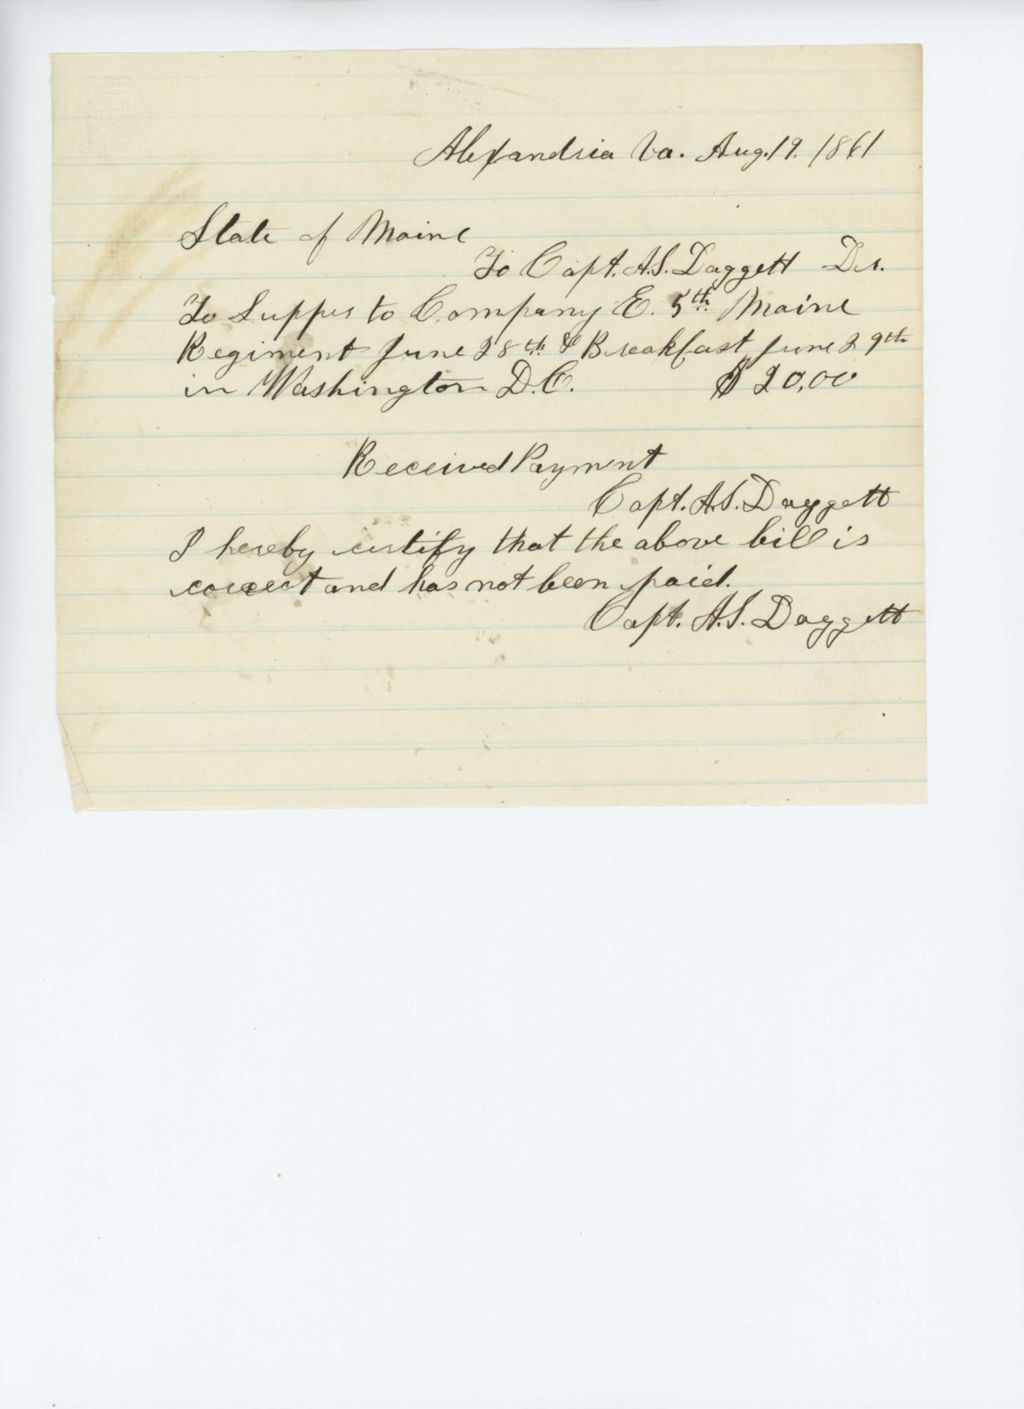 Alexandria Va. Aug. 19. 1861
State of Maine
To Capt. A.S. Daggett Dr.
To Supper to Company E. 5th Maine
Regiment June 28th & Breakfast June 29th
in Washington D.C. $20,00
Received Payment
Capt. A.S. Daggett
I hereby certify that the above bill is
correct and has not been paid.
Capt. A.S. Daggett